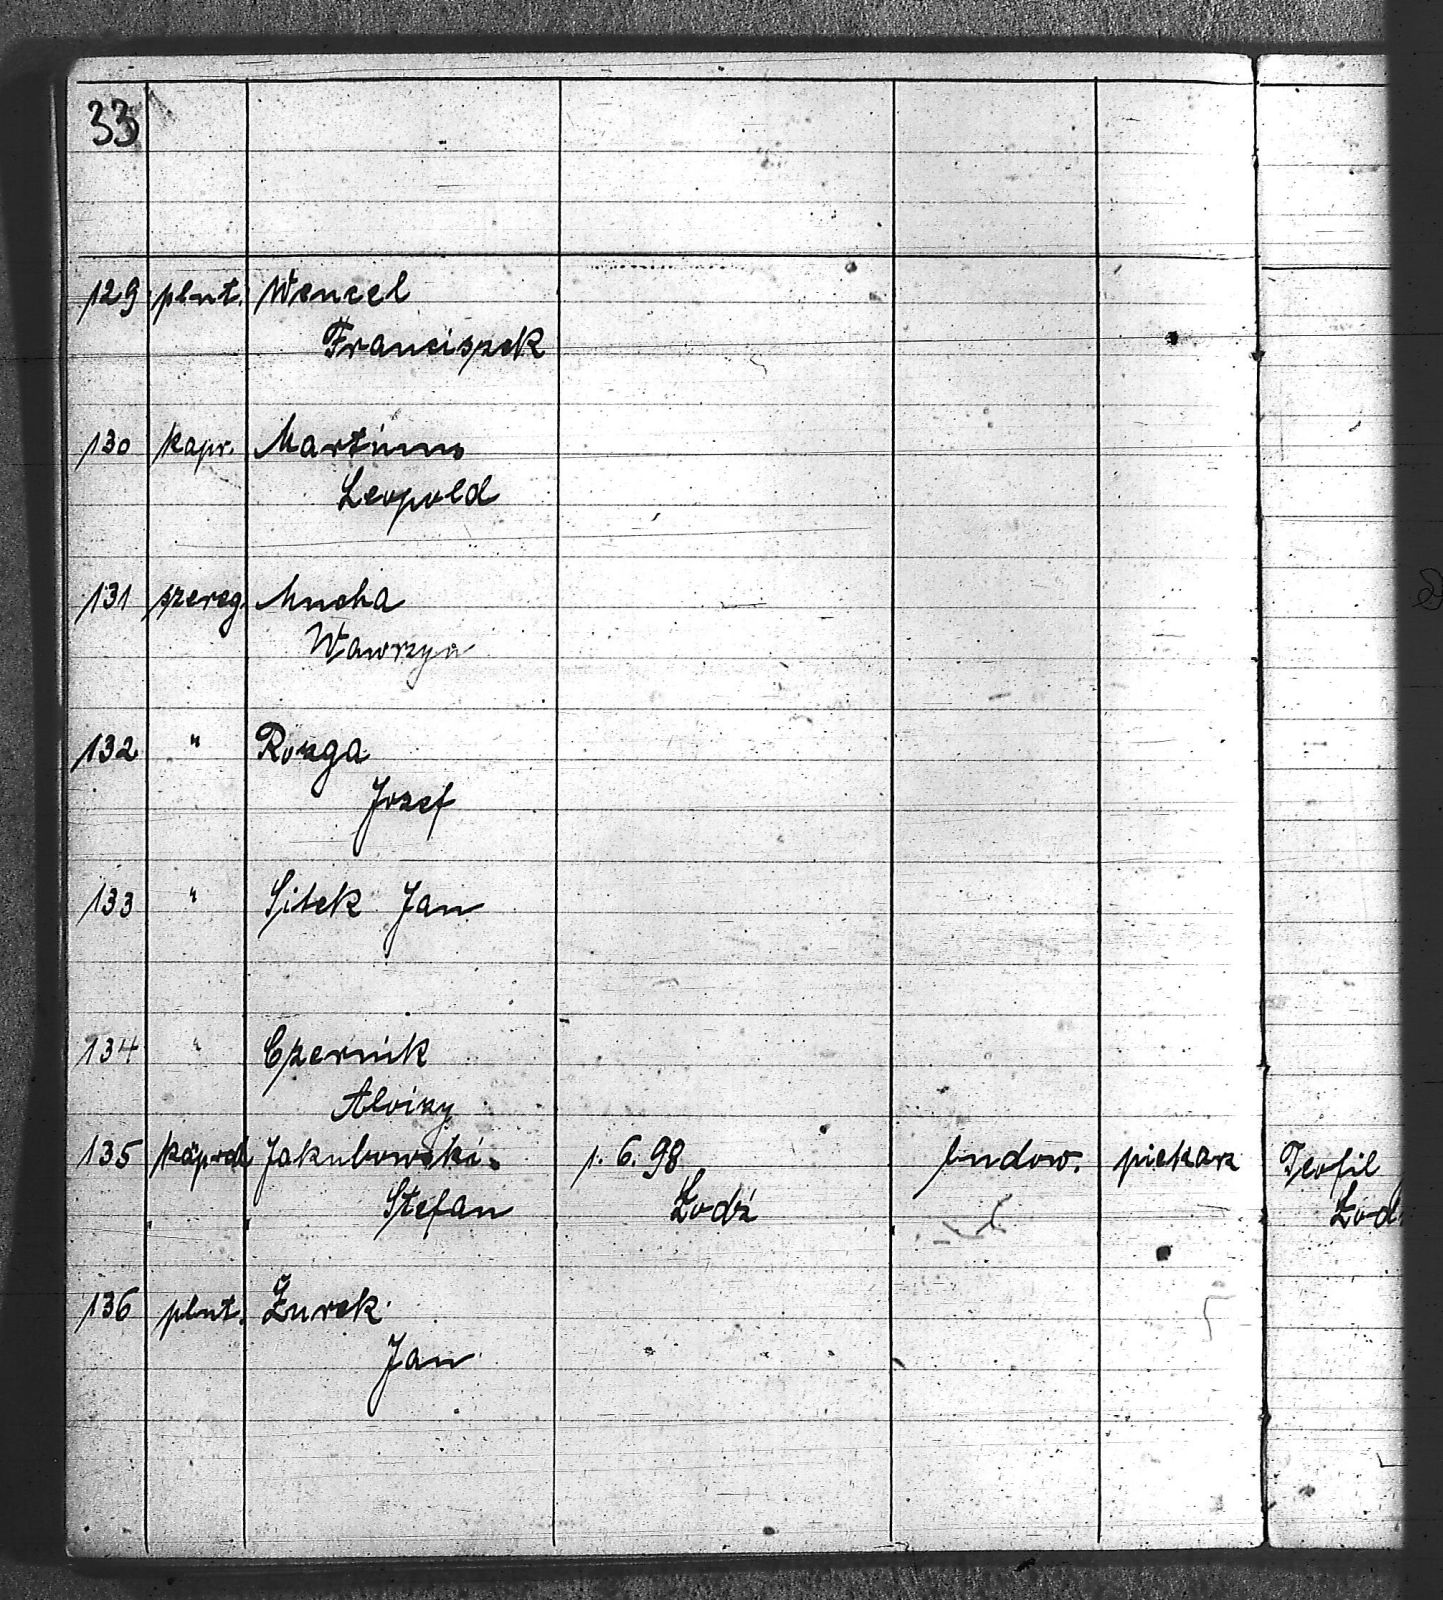 33
129 plut. Wencel
Franciszek
130 kapr. Martinus
Leopold
131 szereg. Mucha
Wawrzyn
132 " Rozga
Jozef
133 " Sitek Jan
134 " Czernik
Alojzy
135 kaprol Jakubowski. 1.6.98 ludow. piekarz Teofil
Stefan Łodź Łod
136 plut. Żurek
Jan